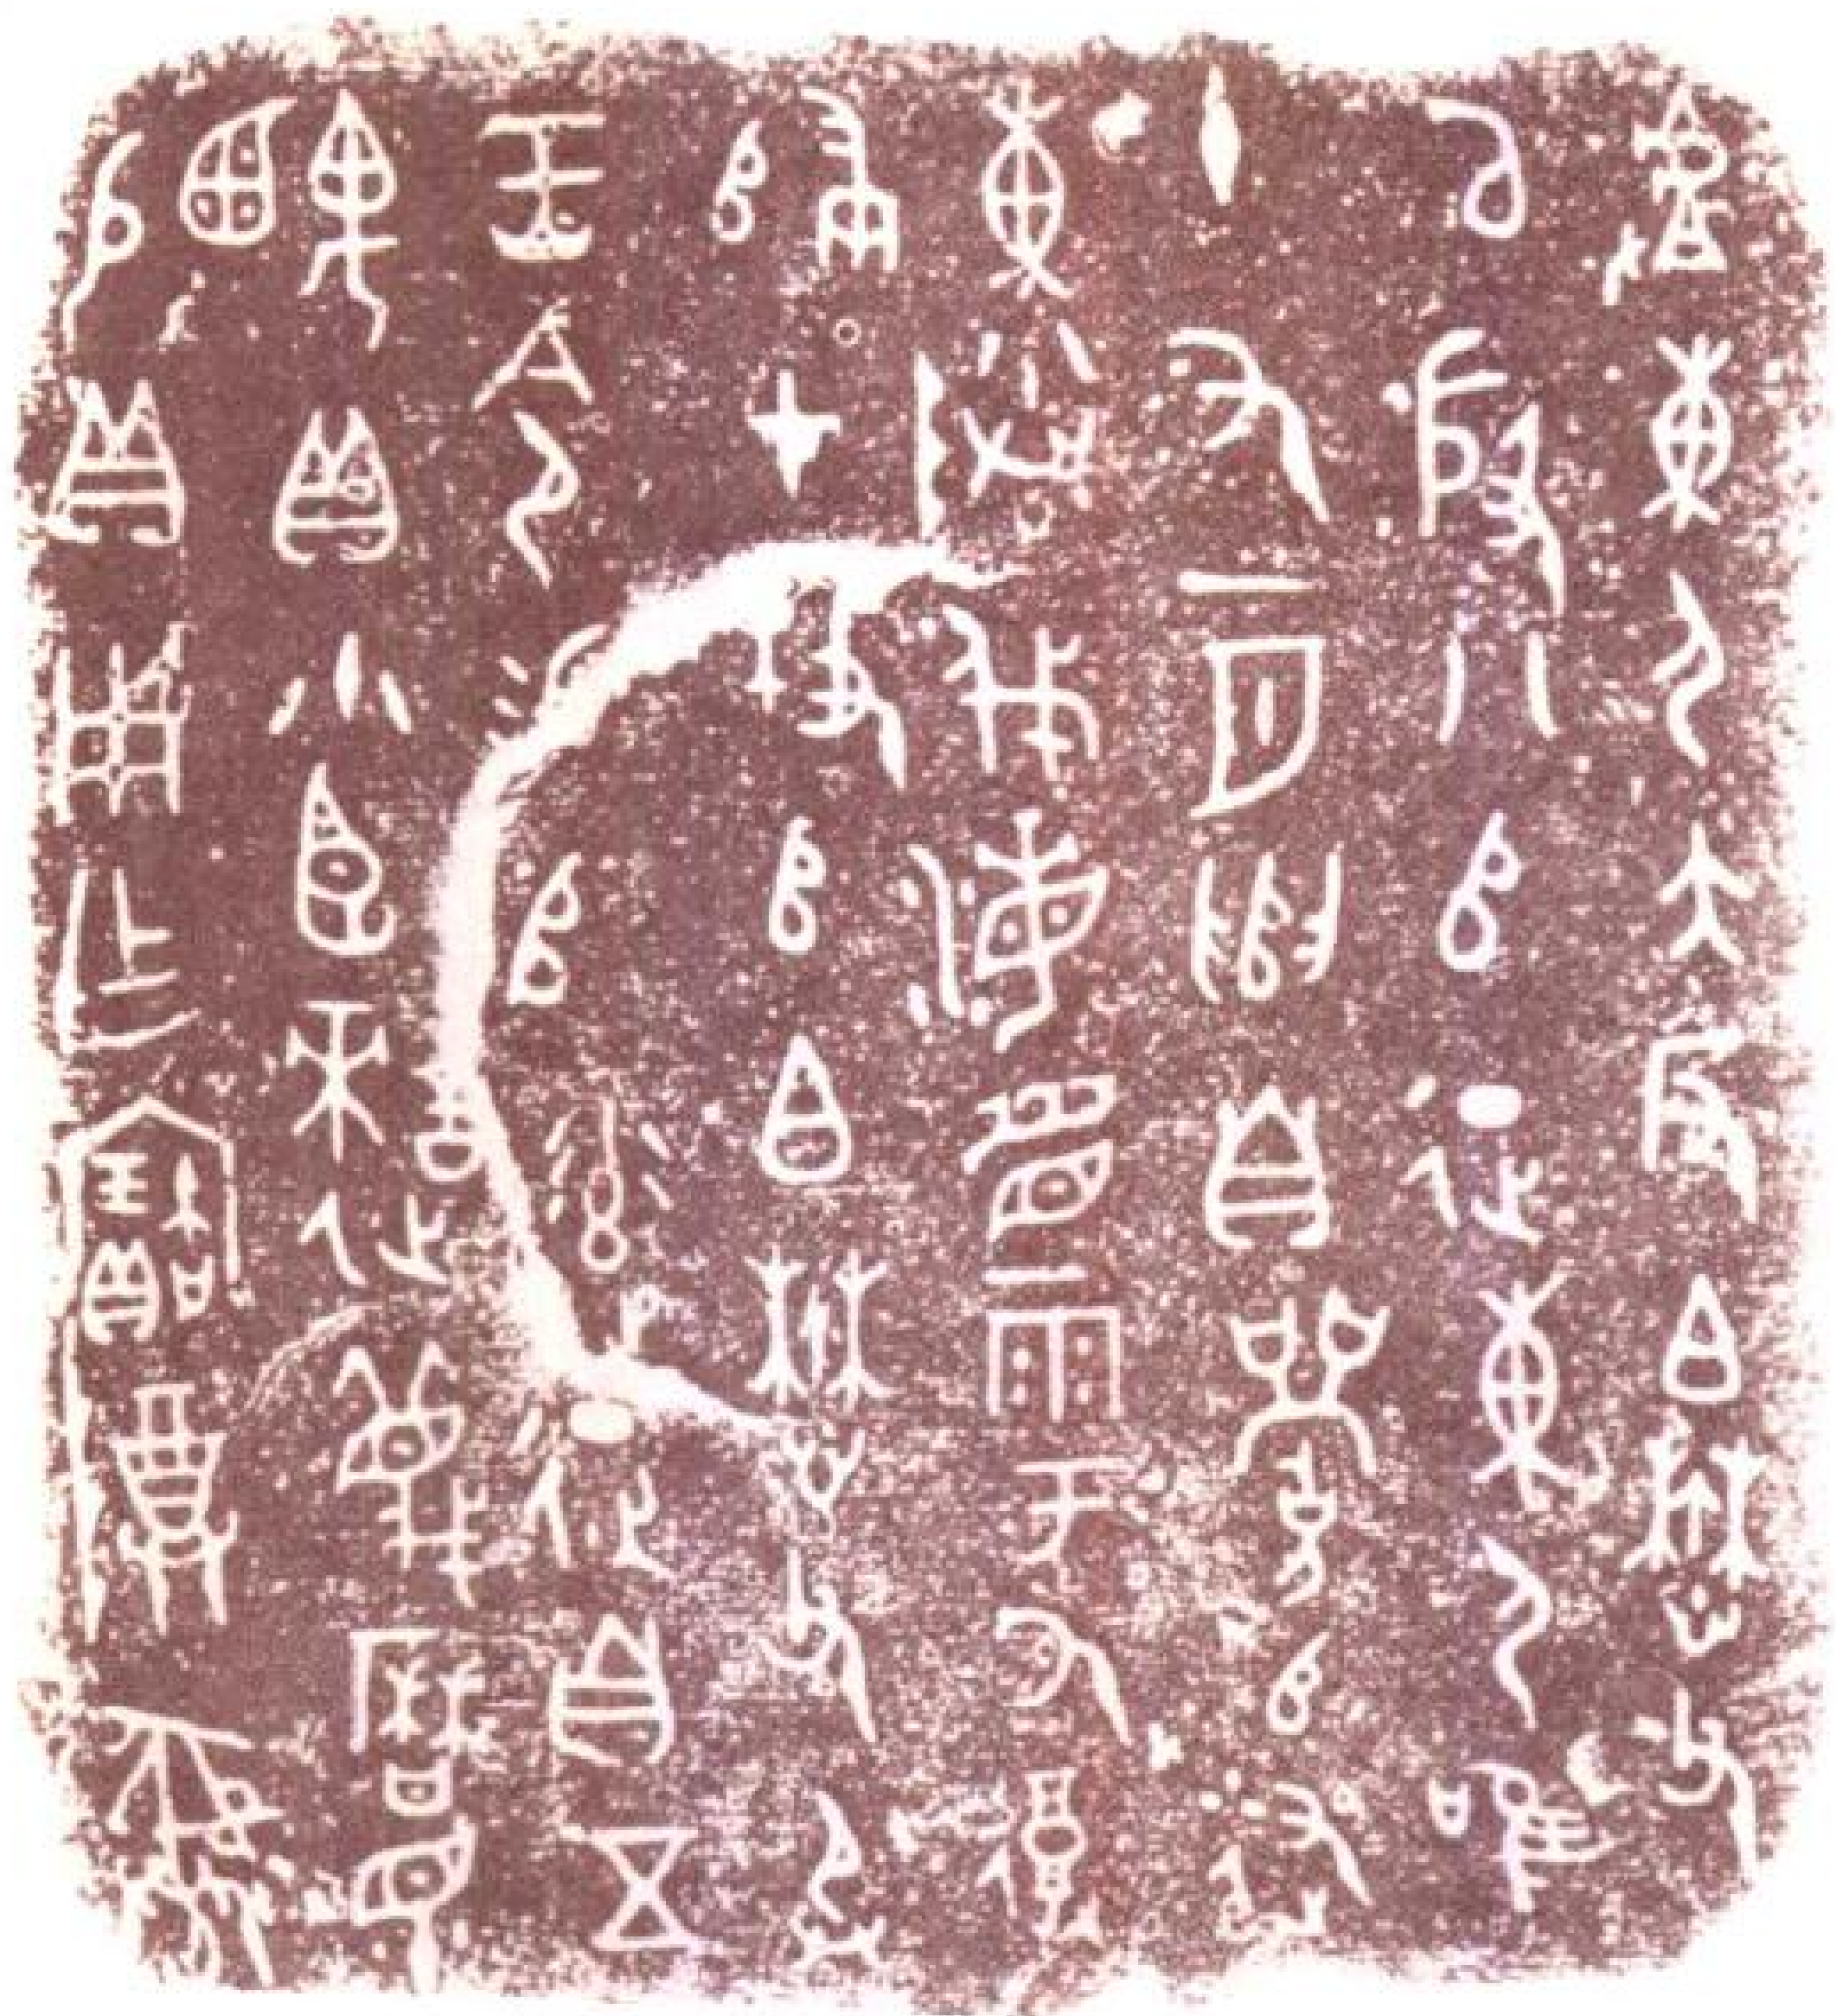 𠭯東尸大反白懋父
㠯殷八𠂤征東尸唯
十又一月遣自𩰬𠂤述
東陕伐海眉雩氒復
歸才牧𠂤白懋父承
王令易𠂤達征自五
齵貝小臣𧩙蔑曆眔
易貝用乍寶尊彝